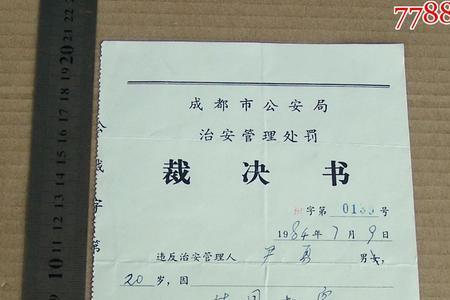 7788
成都市公安局
治安管理处罚
裁决书
字第 0135 号
1984年7月9日
违反治安管理人 尹勇 男女,
20岁,因
公裁字第
22 21 20 19 18 17 16 15 14 13 12 11 10 9